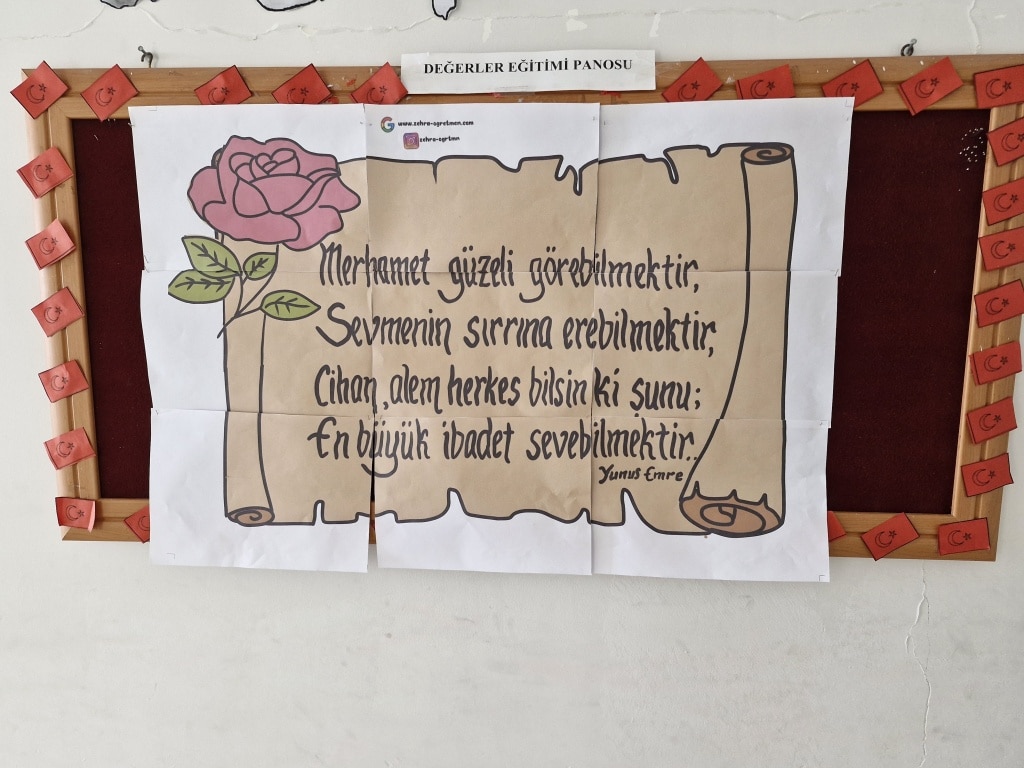 DEĞERLER EĞİTİMİ PANOSU
www.zehra-ogretmen.com
zehra-ogrtmn
Merhamet güzeli görebilmektir,
Sevmenin sırrına erebilmektir,
Cihan, alem herkes bilsin ki şunu;
En büyük ibadet sevebilmektir..
Yunus Emre